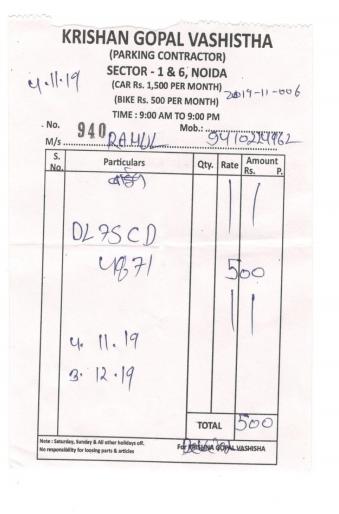 KRISHAN GOPAL VASHISTHA
(PARKING CONTRACTOR)
SECTOR - 1 & 6, NOIDA
4.11.19 (CAR Rs. 1,500 PER MONTH)
(BIKE Rs. 500 PER MONTH) 2019-11-006
TIME : 9:00 AM TO 9:00 PM
No. 940 Mob.:
M/s RAHUL
S. No. Particulars Qty. Rate Amount Rs. P.
DL7SCD
4871 500
4.11.19
3.12.19
TOTAL 500
Note : Saturday, Sunday & All other holidays off.
No responsibility for loosing parts & articles
For KRISHNA GOPAL VASHISHA